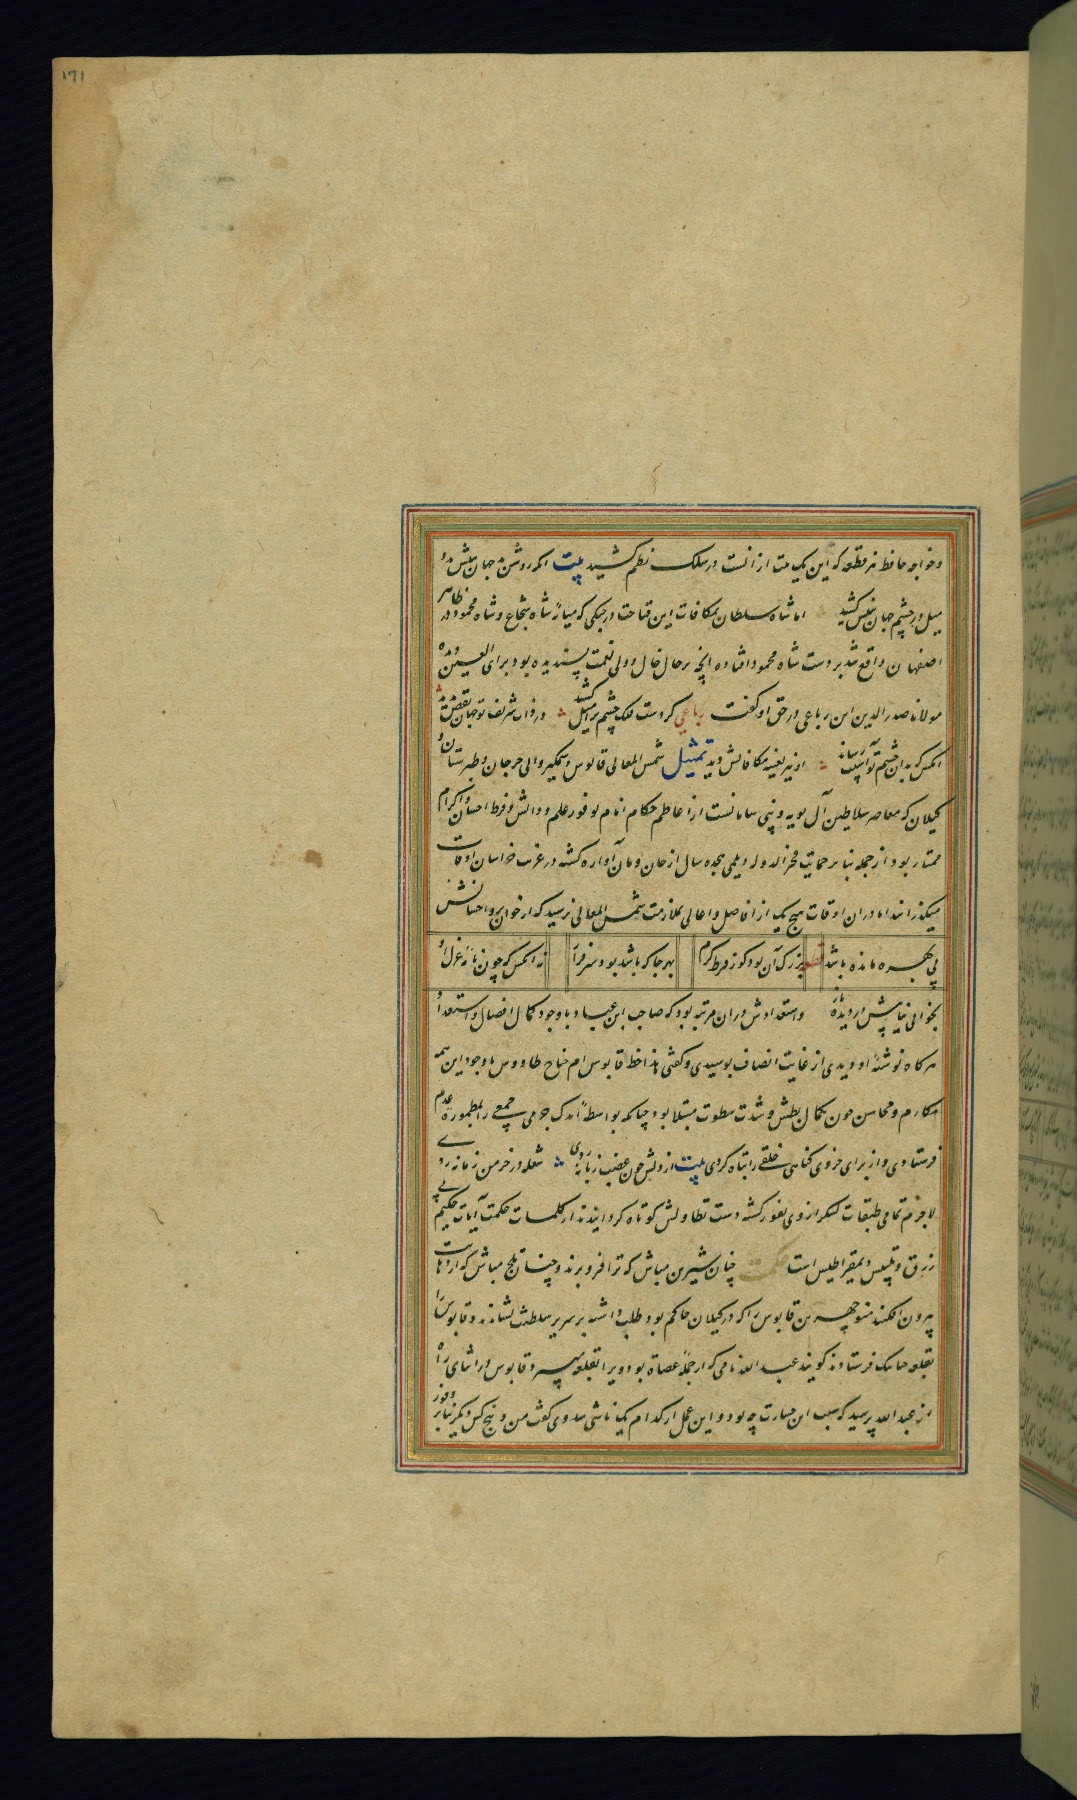 ۱۷۱
و خواجه حافظ نیز قطعه که این یک بیت از آنست در سلک نظم کشید بیت آنکه روشن بد جهان بینش بدو
میل در چشم جهان بینش کشید اما شاه سلطان بمکافات این قباحت در جنکی که میانهٔ شاه شجاع و شاه محمود در ظاهر
اصفهان واقع شد بر دست شاه محمود افتاده آنچه بر حال خال و ولی نعمت پسندیده بود برای العین دیده
مولانا صدرالدین این رباعی در حق او کفت رباعی کر دست فلک چشم ترا میل کشید در ذات شریف تو جهان نقص ندید
آنکس که بدان چشم تو آسیب رساند او نیز بعینه مکافاتش دید تمثیل شمس المعالی قابوس وشمکیر والی جرجان و طبرستان و
کیلان که معاصر سلاطین آل بویه و بنی سامانست از اعاظم حکام انام بوفور علم و دانش و فرط احسان و اکرام
ممتاز بود از جمله بنابر حمایت فخرالدوله دیلمی هجده سال از خان و مان آواره کشته در غربت خراسان اوقات
میکذرانید اما در آن اوقات هیچ یک از افاضل و اعالی بملازمت شمس المعالی نرسید که از خوان بر و احسانش
بی بهره مانده باشد قطعه بزرک آن بود کوز فرط کرم بهر جا که باشد بود سرفراز نه آنکس که چون
بخوانی نیابیش از دیده باز و استعدادش در آن مرتبه بود که صاحب ابن عباد با وجود کمال افضال و استعداد
هر کاه نوشتهٔ او دیدی از غایت انصاف بوسیدی و کفتی هذا خط قابوس ام جناح طاووس با وجود این همه
مکارم و محاسن چون بکمال بطش و شدت سطوت مبتلا بود چنانکه بواسطهٔ اندک جرمی جمعی را بمطمورهٔ عدم
فرستادی و از برای جزوی کناهی خلقی را تباه کردی بیت از دلش چون غضب زبانه زدی شعله در خرمن زمانه زدی
لاجرم تمامی طبقات لشکر از وی نفور کشته دست تطاولش کوتاه کردانیدند از کلمات حکمت آیات حکیم بی
زرق و تلبیس دیمقراطیس است حکمت چنان شیرین مباش که ترا فرو برند و چنان تلخ مباش که از دهانت
بیرون افکنند منوچهر بن قابوس را که در کیلان حاکم بود طلب داشته بر سریر سلطنت نشاندند و قابوس را
بقلعه جناشک فرستادند کویند عبدالله نامی که از جملهٔ عصاة بود ویرا بقلعه میبرد قابوس در اثنای راه
از عبدالله پرسید که سبب این جسارت چه بود و این عمل از کدام یک ناشی شد وی کفت من و پنج کس دیکر بنابر وفور